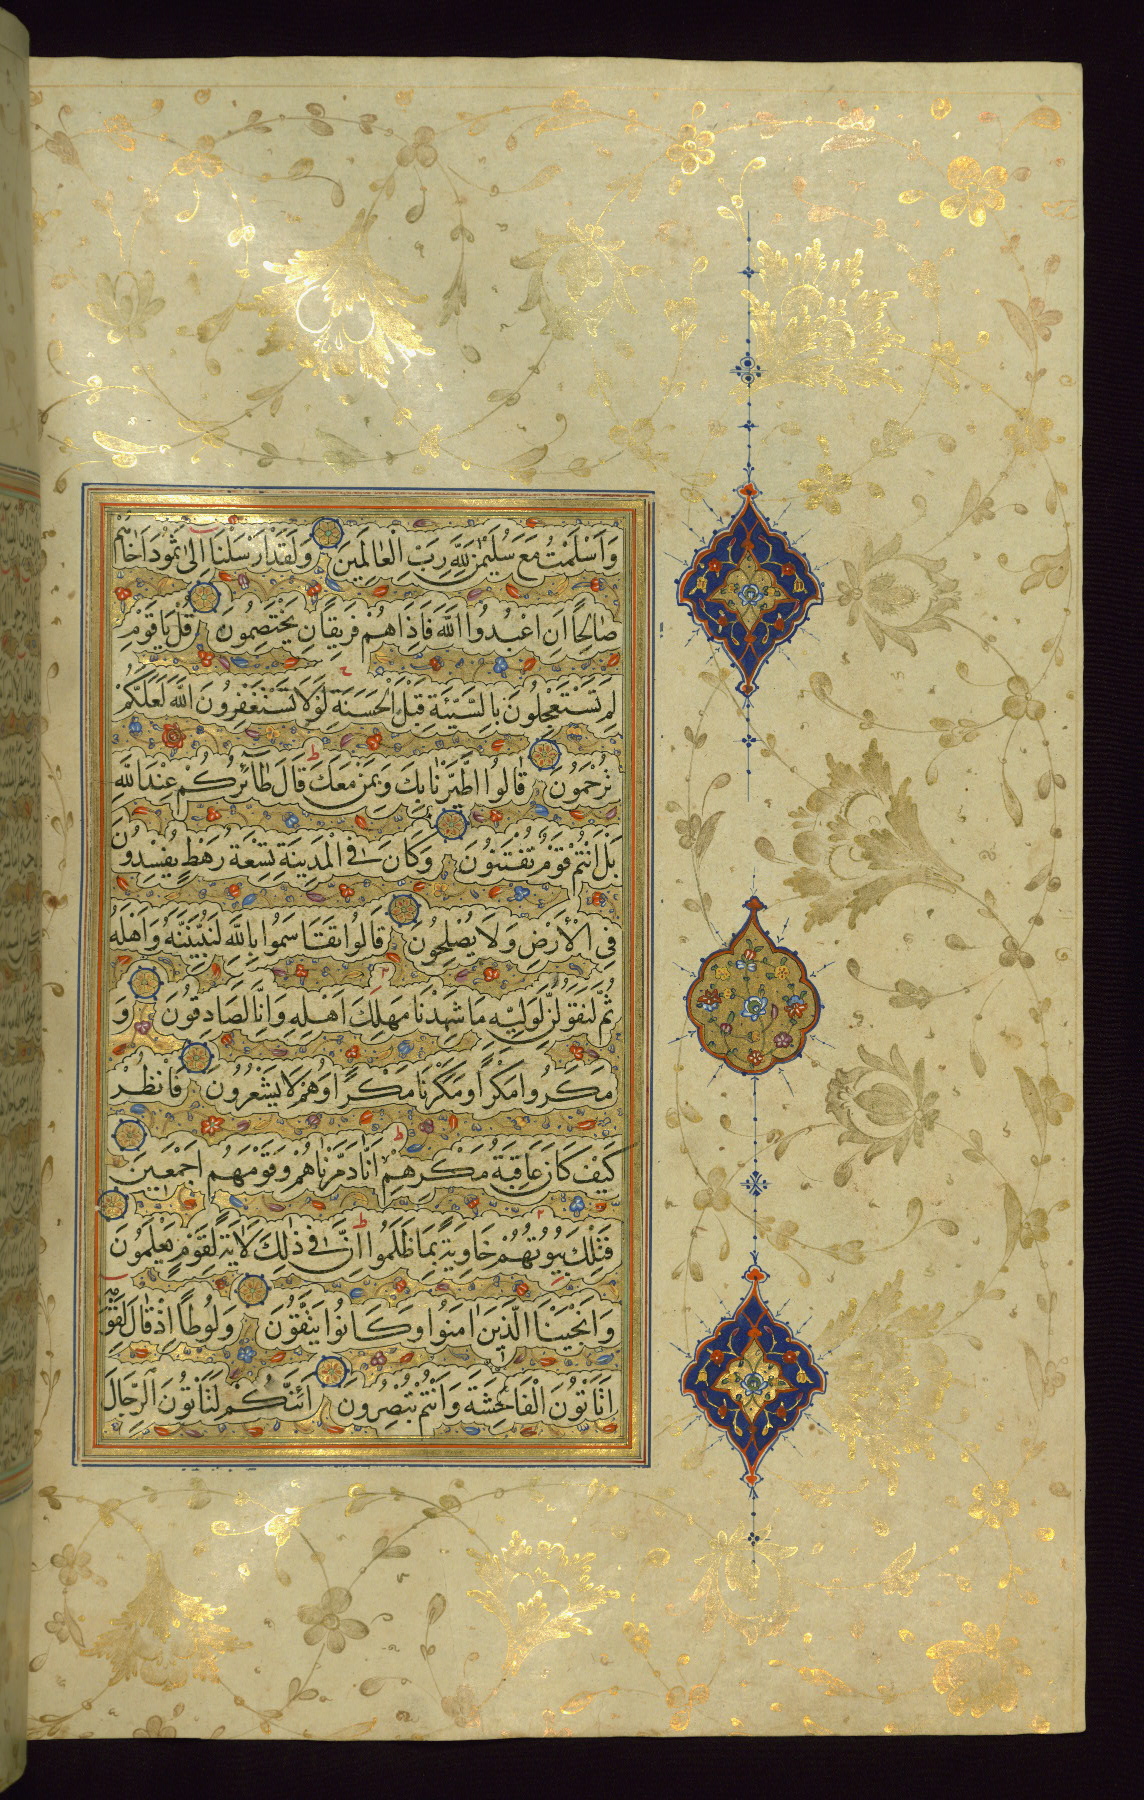 وَاَسْلَمْتُ مَعَ سُلَيْمٰنَ لِلّٰهِ رَبِّ الْعَالَمِينَ وَلَقَدْ اَرْسَلْنَا اِلٰى ثَمُودَ اَخَاهُمْ
صَالِحًا اَنِ اعْبُدُوا اللّٰهَ فَاِذَا هُمْ فَرِيقَانِ يَخْتَصِمُونَ قَالَ يَا قَوْمِ
لِمَ تَسْتَعْجِلُونَ بِالسَّيِّئَةِ قَبْلَ الْحَسَنَةِ لَوْلَا تَسْتَغْفِرُونَ اللّٰهَ لَعَلَّكُمْ
تُرْحَمُونَ قَالُوا اطَّيَّرْنَا بِكَ وَبِمَنْ مَعَكَ قَالَ طَائِرُكُمْ عِنْدَ اللّٰهِ
بَلْ اَنْتُمْ قَوْمٌ تُفْتَنُونَ وَكَانَ فِى الْمَدِينَةِ تِسْعَةُ رَهْطٍ يُفْسِدُونَ
فِى الْاَرْضِ وَلَا يُصْلِحُونَ قَالُوا تَقَاسَمُوا بِاللّٰهِ لَنُبَيِّتَنَّهُ وَاَهْلَهُ
ثُمَّ لَنَقُولَنَّ لِوَلِيِّهِ مَا شَهِدْنَا مَهْلِكَ اَهْلِهِ وَاِنَّا لَصَادِقُونَ وَ
مَكَرُوا مَكْرًا وَمَكَرْنَا مَكْرًا وَهُمْ لَا يَشْعُرُونَ فَانْظُرْ
كَيْفَ كَانَ عَاقِبَةُ مَكْرِهِمْ اَنَّا دَمَّرْنَاهُمْ وَقَوْمَهُمْ اَجْمَعِينَ
فَتِلْكَ بُيُوتُهُمْ خَاوِيَةً بِمَا ظَلَمُوا اِنَّ فِى ذٰلِكَ لَاٰيَةً لِقَوْمٍ يَعْلَمُونَ
وَاَنْجَيْنَا الَّذِينَ اٰمَنُوا وَكَانُوا يَتَّقُونَ وَلُوطًا اِذْ قَالَ لِقَوْمِهِ
اَتَأْتُونَ الْفَاحِشَةَ وَاَنْتُمْ تُبْصِرُونَ اَئِنَّكُمْ لَتَأْتُونَ الرِّجَالَ